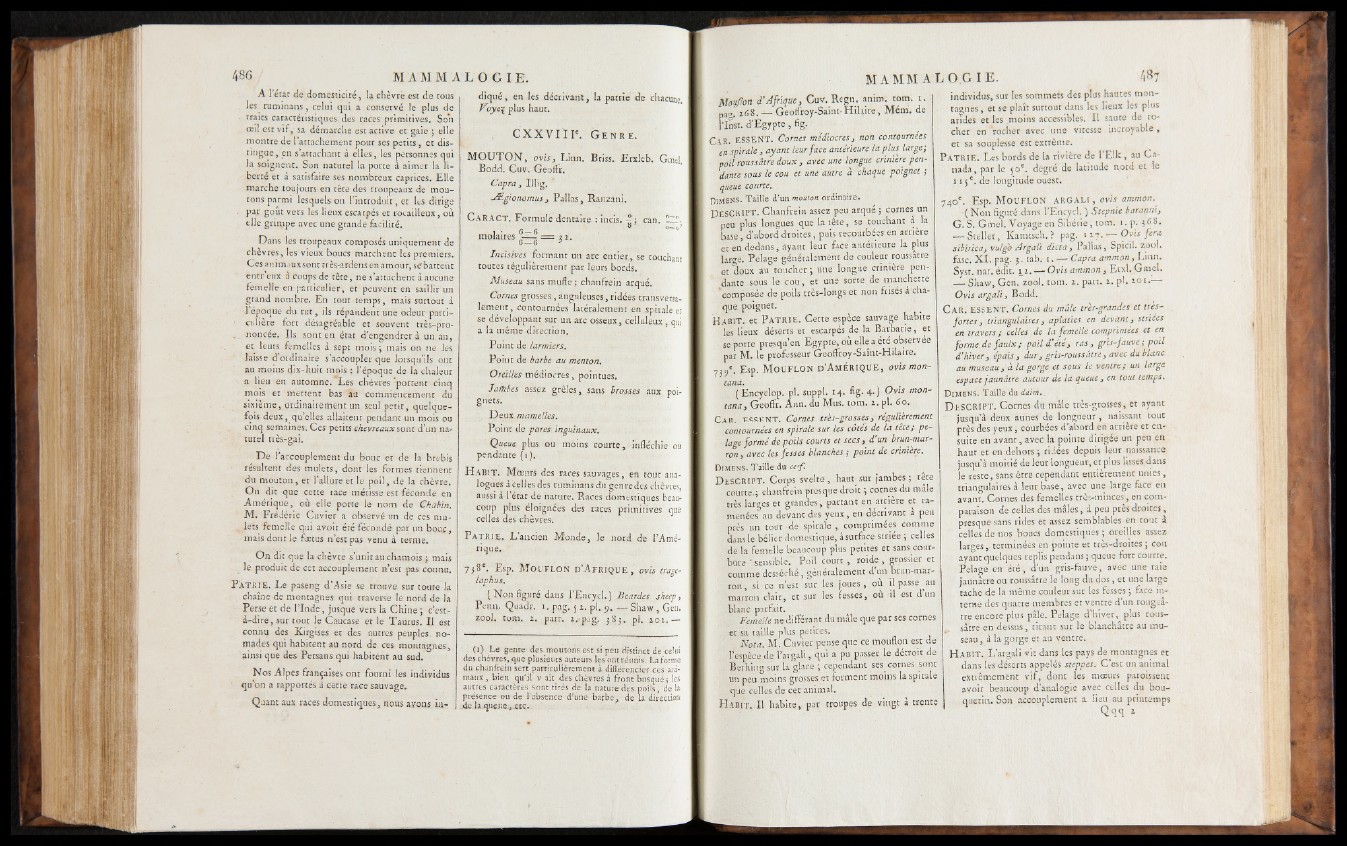 486
MAMMALOGIE.
A l'état de domesticité, la chèvre est de tous
les ruminans, celui qui a conservé le plus de
traits caractéristiques des races primitives. Son
œil est vif, sa démarche est active et gaie ; elle
montre de l'attachement pour ses petits, et dis-
tingue, en s'attachant à elles, les personnes qui
la soignent. Son naturel la porte à aimer la li-
berté et à satisfaire ses nombreux caprices. Elle
marche toujours en tête des troupeaux de mou-
tons parmi lesquels on l'introduit, et les dirige
par goût vers les lieux escarpés et rocailleux, où
elle grimpe avec une grande facilité.
Dans les troupeaux composés uniquement de
chèvres, les vieux boucs marchent les premiers.
Ces animaux sont très-ardens en amour, se battent
entr'eux à coups de tête, ne s'attachent à aucune
femelle en particulier, et peuvent en saillir un
grand nombre. En tout temps, mais surtout à
l'époque du rut, ils répandent une odeur parti-
culière fort désagréable et souvent très-pro-
noncée. Ils sont en état d'engendrer à un an,
et leurs femelles à sept mois ; mais on ne les
laisse d'ordinaire s'accoupler que lorsqu'ils ont
au moins dix-huit mois : l'époque de la chaleur
a lieu en automne. Les chèvres portent cinq
mois et mettent bas au commencement du
sixième, ordinairement un seul petit, quelque-
fois deux, qu'elles allaitent pendant un mois ou
cinq semaines. Ces petits chevreaux sont d'un na-
turel très-gai.
De l'accouplement du bouc et de la brebis
résultent des mulets, dont les formes tiennent
du mouton, et l'allure et le poil, de la chèvre.
On dit que cette race métisse est féconde en
Amérique, où elle porte le nom de Chabin.
M. Fréderic Cuvier a observé un de ces mu-
lets femelle qui avoit été fécondé par un bouc,
mais dont le fœtus n'est pas venu à terme.
On dit que la chèvre s'unit au chamois ; mais
le produit de cet accouplement n'est pas connu.
PATRIE. Le paseng d'Asie se trouve sur toute la
chaîne de montagnes qui traverse le nord de la
Perse et de l'Inde, jusque vers la Chine ; c'est-
à-dire, sur tout le Caucase et le Taurus. Il est
connu des Kirgises et des autres peuples no-
mades qui habitent au nord de ces montagnes,
ainsi que des Persans qui habitent au sud.
Nos Alpes françaises ont fourni les individus
qu'on a rapportés à cette race sauvage.
Quant aux races domestiques, nous avons in-
diqué, en les décrivant, la patrie de chacune.
Voyez plus haut.
CXXVIIIe. GENRE.
MOUTON, ovis, Linn. Briss. Erxleb. Gmel.
Bodd. Cuv. Geoffr.
Capra, Illig.
Ægionomus, Pallas, Ranzani.
CARACT. Formule dentaire : incis. 0/8 ; can. 0—0/0—0 ;
molaires 6—6/6—6 = 32.
Incisives formant un arc entier, se touchant
toutes régulièrement par leurs bords.
Museau sans mufle ; chanfrein arqué.
Cornes grosses, anguleuses, ridées transversa-
lement, contournées latéralement en spirale et
se développant sur un arc osseux, celluleux, qui
a la même direction.
Point de larmiers.
Point de barbe au menton.
Oreilles médiocres, pointues.
Jambes assez grèles, sans brosses aux poi-
gnets.
Deux mamelles.
Point de pores inguinaux.
Queue plus ou moins courte, infléchie ou
pendante (1).
HABIT. Mœurs des races sauvages, en tout ana-
logues à celles des ruminans du genre des chèvres,
aussi à l'état de nature. Races domestiques beau-
coup plus éloignées des races primitives que
celles des chèvres.
PATRIE. L'ancien Monde, le nord de l'Amé-
rique.
738e. Esp. MOUFLON D'AFRIQUE, ovis trage-
laphus.
( Non figuré dans l'Encycl.) Beardes sheep,
Penn. Quadr. 1. pag. 52. pl. 9. — Shaw, Gen.
zool. tom. 2. part. 2. pag. 383. pl. 202. —
(1) Le genre des moutons est si peu distinct de celui
des chèvres, que plusieurs auteurs les ont réunis. La forme
du chanfrein sert particulièrement à différencier ces ani-
maux, bien qu'il y ait des chèvres à front busqué ; les
autres caractères sont tirés de la nature des poils, de la
présence ou de l'absence d'une barbe, de la direction
de la queue, etc.
MAMMALOGIE.
487
Mouflon d'Afrique, Cuv. Regn. anim. tom. 1.
pag. 268. — Geoffroy-Saint-Hilaire, Mém. de
l'Inst. d'Egypte, fig.
CAR. ESSENT. Cornes médiocres, non contournées
en spirale, ayant leur face antérieure la plus large ;
poil roussâtre doux, avec une longue crinière pen-
dante sous le cou et une autre à chaque poignet ;
queue courte.
DIMENS. Taille d'un mouton ordinaire.
DESCRIPT. Chanfrein assez peu arqué ; cornes un
peu plus longues que la tête, se touchant à la
base, d'abord droites, puis recourbées en arrière
et en dedans, ayant leur face antérieure la plus
large. Pelage généralement de couleur roussâtre
et doux au toucher ; une longue crinière pen-
dante sous le cou, et une sorte de manchette
composée de poils très-longs et non frisés à cha-
que poignet.
HABIT. et PATRIE. Cette espèce sauvage habite
les lieux déserts et escarpés de la Barbarie, et
se porte presqu'en Egypte, où elle a été observée
par M. le professeur Geoffroy-Saint-Hilaire.
739e. Esp. MOUFLON D'AMÉRIQUE, ovis mon-
tana.
( Encyclop. pl. suppl. 14. fig. 4.) Ovis mon-
tana, Geoffr. Ann. du Mus. tom. 2. pl. 60.
CAR. ESSENT. Cornes très-grosses, régulièrement
contournées en spirale sur les côtés de la tête ; pe-
lage formé de poils courts et secs, d'un brun-mar-
ron, avec les fesses blanches ; point de crinière.
DIMENS. Taille du cerf.
DESCRIPT. Corps svelte, haut sur jambes ; tête
courte ; chanfrein presque droit ; cornes du mâle
très larges et grandes, partant en arrière et ra-
menées au devant des yeux, en décrivant à peu
près un tour de spirale, comprimées comme
dans le bélier domestique, à surface striée ; celles
de la femelle beaucoup plus petites et sans cour-
bure sensible. Poil court, roide, grossier et
comme desséché, généralement d'un brun-mar-
ron, si ce n'est sur les joues, où il passe au
marron clair, et sur les fesses, où il est d'un
blanc parfait.
Femelle ne différant du mâle que par ses cornes
et sa taille plus petites.
Nota. M. Cuvier pense que ce mouflon est de
l'espèce de l'argali, qui a pu passer le détroit de
Berhing sur la glace ; cependant ses cornes sont
un peu moins grosses et forment moins la spirale
que celles de cet animal.
HABIT. Il habite, par troupes de vingt à trente
individus, sur les sommets des plus hautes mon-
tagnes, et se plaît surtout dans les lieux les plus
arides et les moins accessibles. Il saute de ro-
cher en rocher avec une vitesse incroyable,
et sa souplesse est extrême.
PATRIE. Les bords de la rivière de l'Elk, au Ca-
nada, par le 50e. degré de latitude nord et le
115e. de longitude ouest.
740e. Esp. MOUFLON ARGALI, ovis ammon.
( Non figuré dans l'Encycl. ) Stepnie baranni,
G. S. Gmel. Voyage en Sibérie, tom. 1. p. 368.
— Steller, Kamtsch. ? pag. 127. — Ovis fera
sibirica, vulgò Argali dicta, Pallas, Spicil. zool.
fasc. XI. pag. 3. tab. 1. — Capra ammon, Linn.
Syst. nat. édit. 12. — Ovis ammon, Erxl. Gmel.
— Shaw, Gen. zool. tom. 2. part. 2. pl. 201. —
Ovis argali, Bodd.
CAR. ESSENT. Cornes du mâle très-grandes et très-
fortes, triangulaires, aplaties en devant, striées
en travers ; celles de la femelle comprimées et en
forme de faulx ; poil d'été, ras, gris-fauve ; poil
d'hiver, épais, dur, gris-roussâtre, avec du blanc
au museau, à la gorge et sous le ventre ; un large
espace jaunâtre autour de la queue, en tout temps.
DIMENS. Taille du daim.
DESCRIPT. Cornes du mâle très-grosses, et ayant
jusqu'à deux aunes de longueur, naissant tout
près des yeux, courbées d'abord en arrière et en-
suite en avant, avec la pointe dirigée un peu en
haut et en dehors ; ridées depuis leur naissance
jusqu'à moitié de leur longueur, et plus lisses dans
le reste, sans être cependant entièrement unies,
triangulaires à leur base, avec une large face en
avant. Cornes des femelles très-minces, en com-
paraison de celles des mâles, à peu près droites,
presque sans rides et assez semblables en tout à
celles de nos boucs domestiques ; oreilles assez
larges, terminées en pointe et très-droites ; cou
ayant quelques replis pendans ; queue fort courte.
Pelage en été, d'un gris-fauve, avec une raie
jaunâtre ou roussâtre le long du dos, et une large
tache de la même couleur sur les fesses ; face in-
terne des quatre membres et ventre d'un rougeâ-
tre encore plus pâle. Pelage d'hiver, plus rous-
sâtre en dessus, tirant sur le blanchâtre au mu-
seau, à la gorge et au ventre.
HABIT. L'argali vit dans les pays de montagnes et
dans les déserts appelés steppes. C'est un animal
extrêmement vif, dont les mœurs paroissent
avoir beaucoup d'analogie avec celles du bou-
quetin. Son accouplement a lieu au printemps
Qqq 2